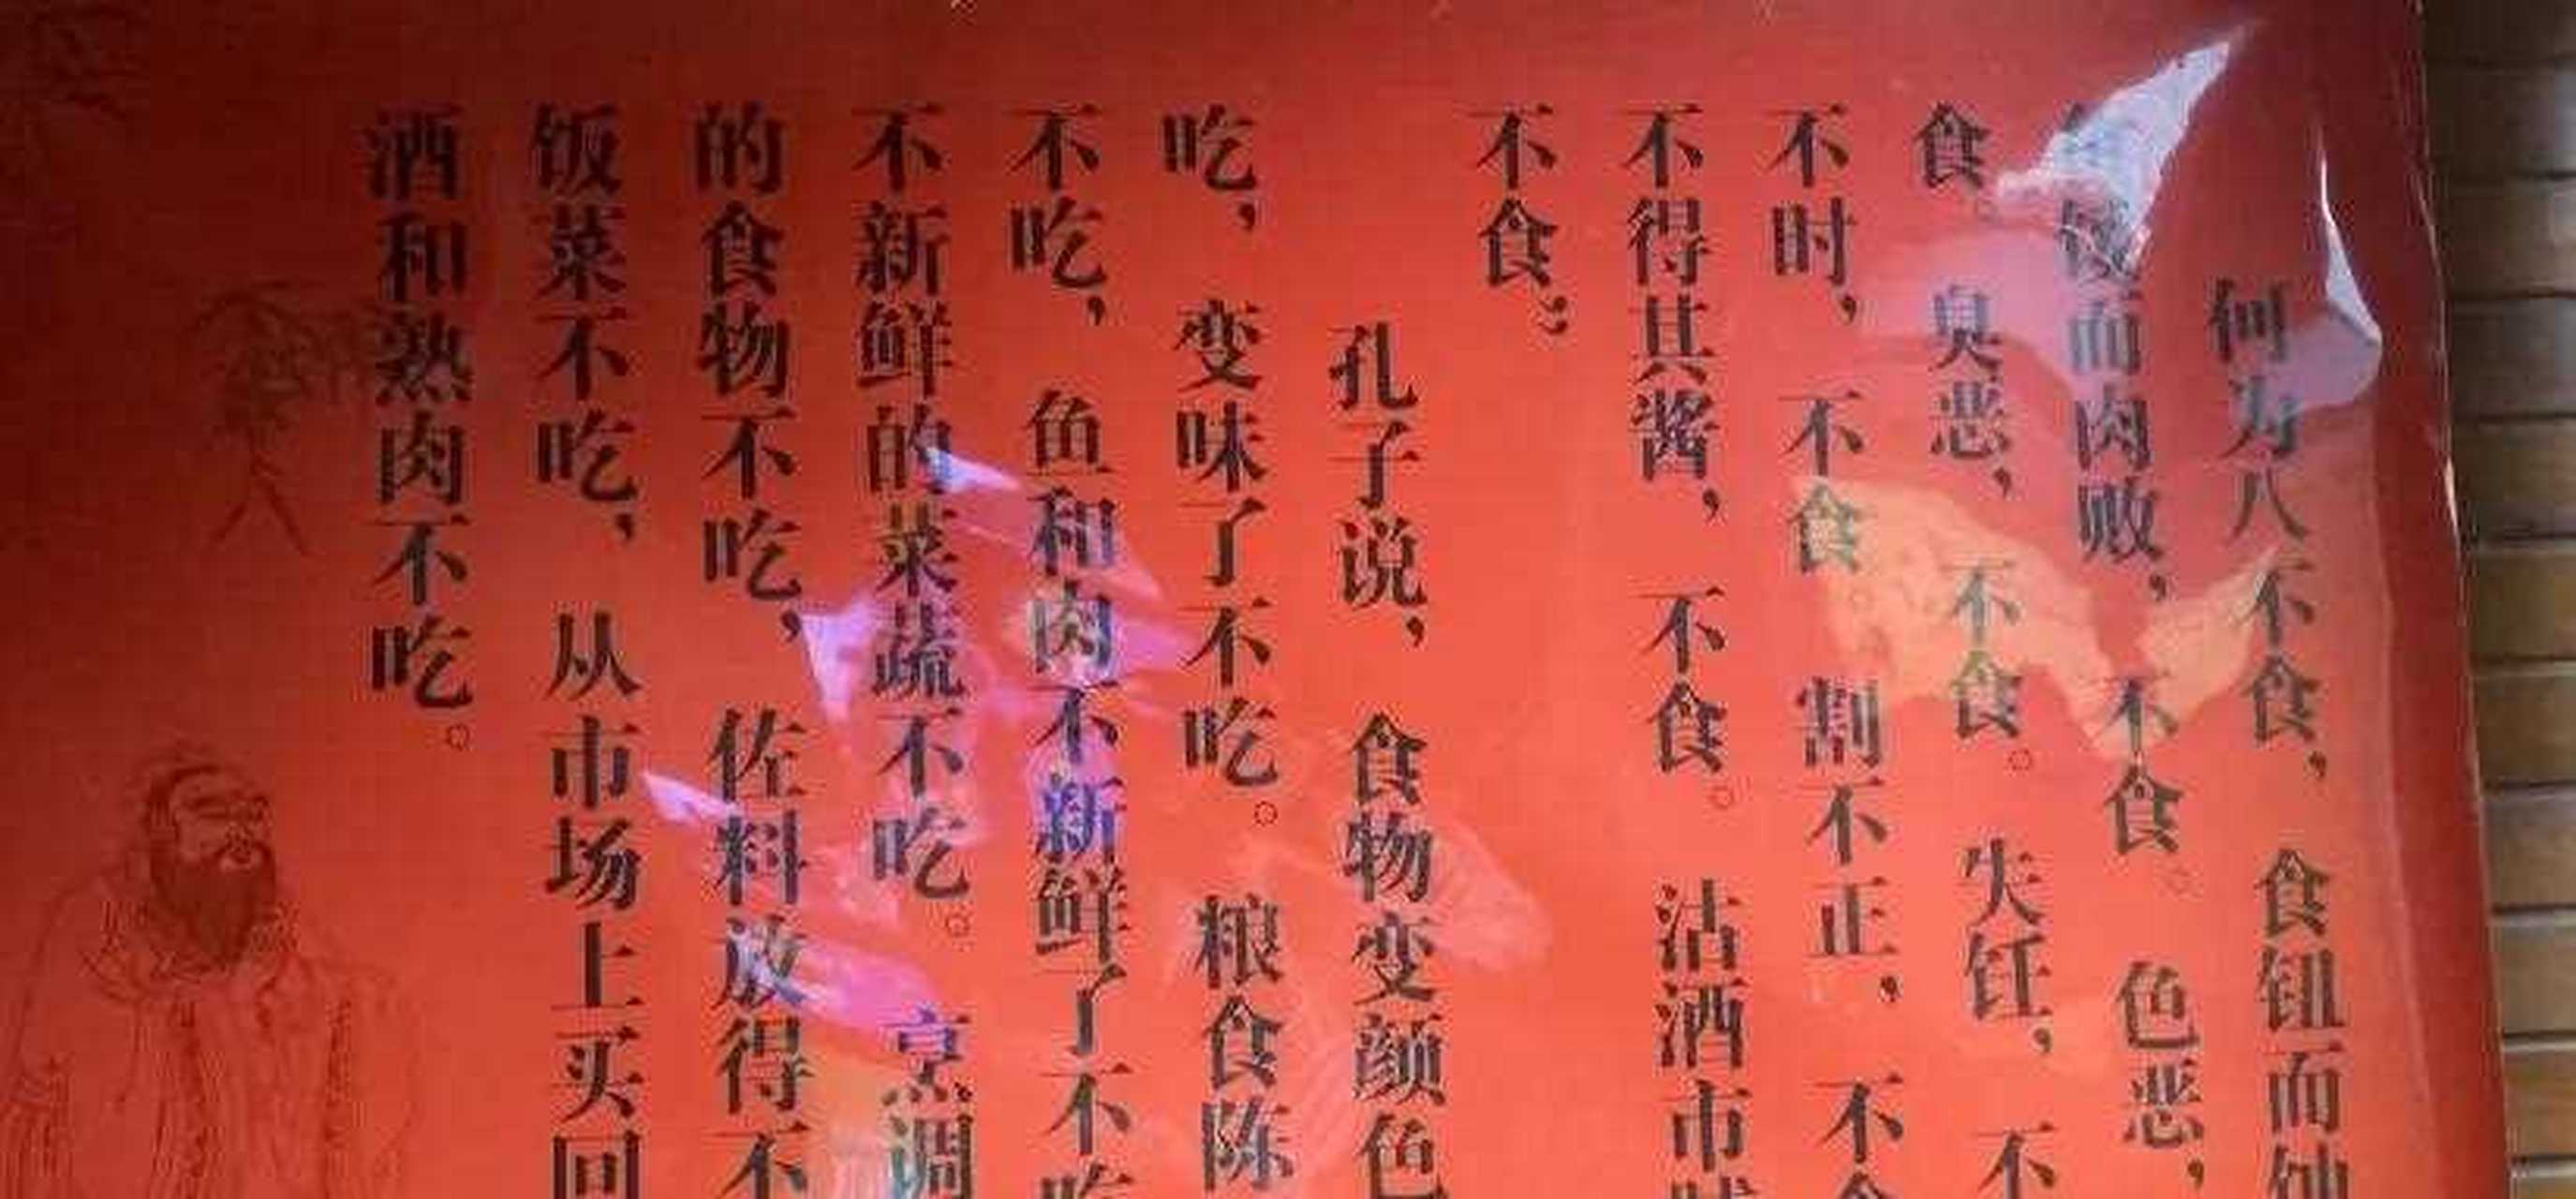 何为八不食，食而
馁而肉败，不食。色恶，
食。臭恶，不食。失饪，不
不时，不食 割不正，不食
不得其酱，不食。沽酒市
不食；
孔子说，食物变颜色
吃，变味了不吃。粮食陈
不吃，鱼和肉不新鲜了不吃
不新鲜的菜蔬不吃。烹调
的食物不吃，佐料放得不
饭菜不吃，从市场上买回
酒和熟肉不吃。